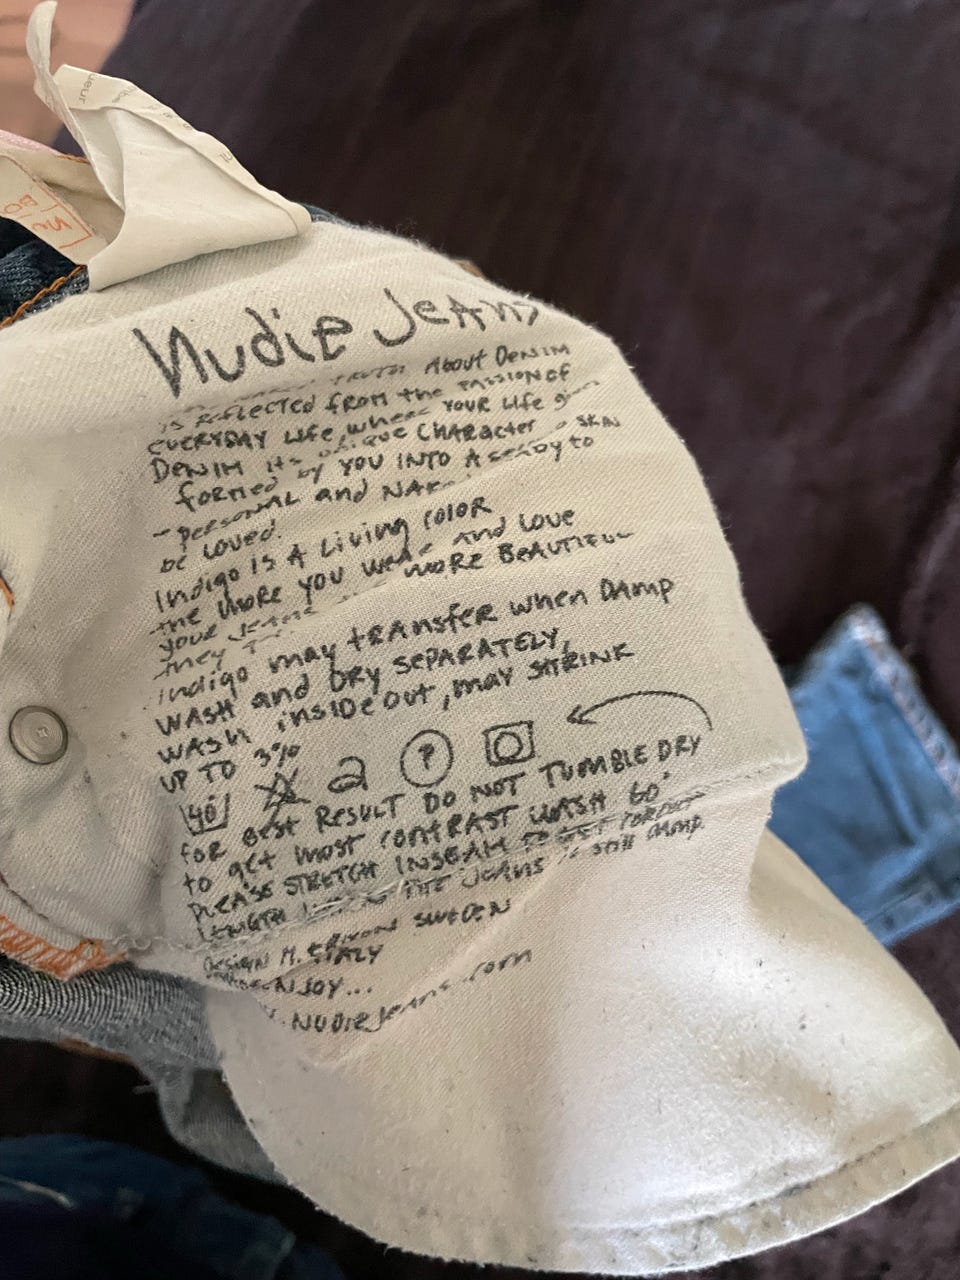 Nudie Jeans
TRUTH About DENIM
is REFLECTED from the PASSION of
EVERYDAY LIFE, where YOUR LIFE
DENIM its unique CHARActer SKIN
formed by YOU INTO A READY to
- PERSONAL and
be LOVED.
Indigo IS A Living COLOR
the more YOU WEAR and LOVE
your JEANS
they more BEAUTIFUL
Indigo may tRANSFER when DAMP
WASH and DRY SEPARATELY,
WASH insIDeout, may SHRINK
UP TO 3%
40° ?
foR BEST RESULT DO NOT TUMBLE DRY
to get most CONTRAST WASH 60°
PLEASE STRETCH INSEAM TO GET
LENGTH THE JEANS is still DAMP.
DESIGN M. SWEDEN
ITALY
ENJOY...
NUDIeJeans.com